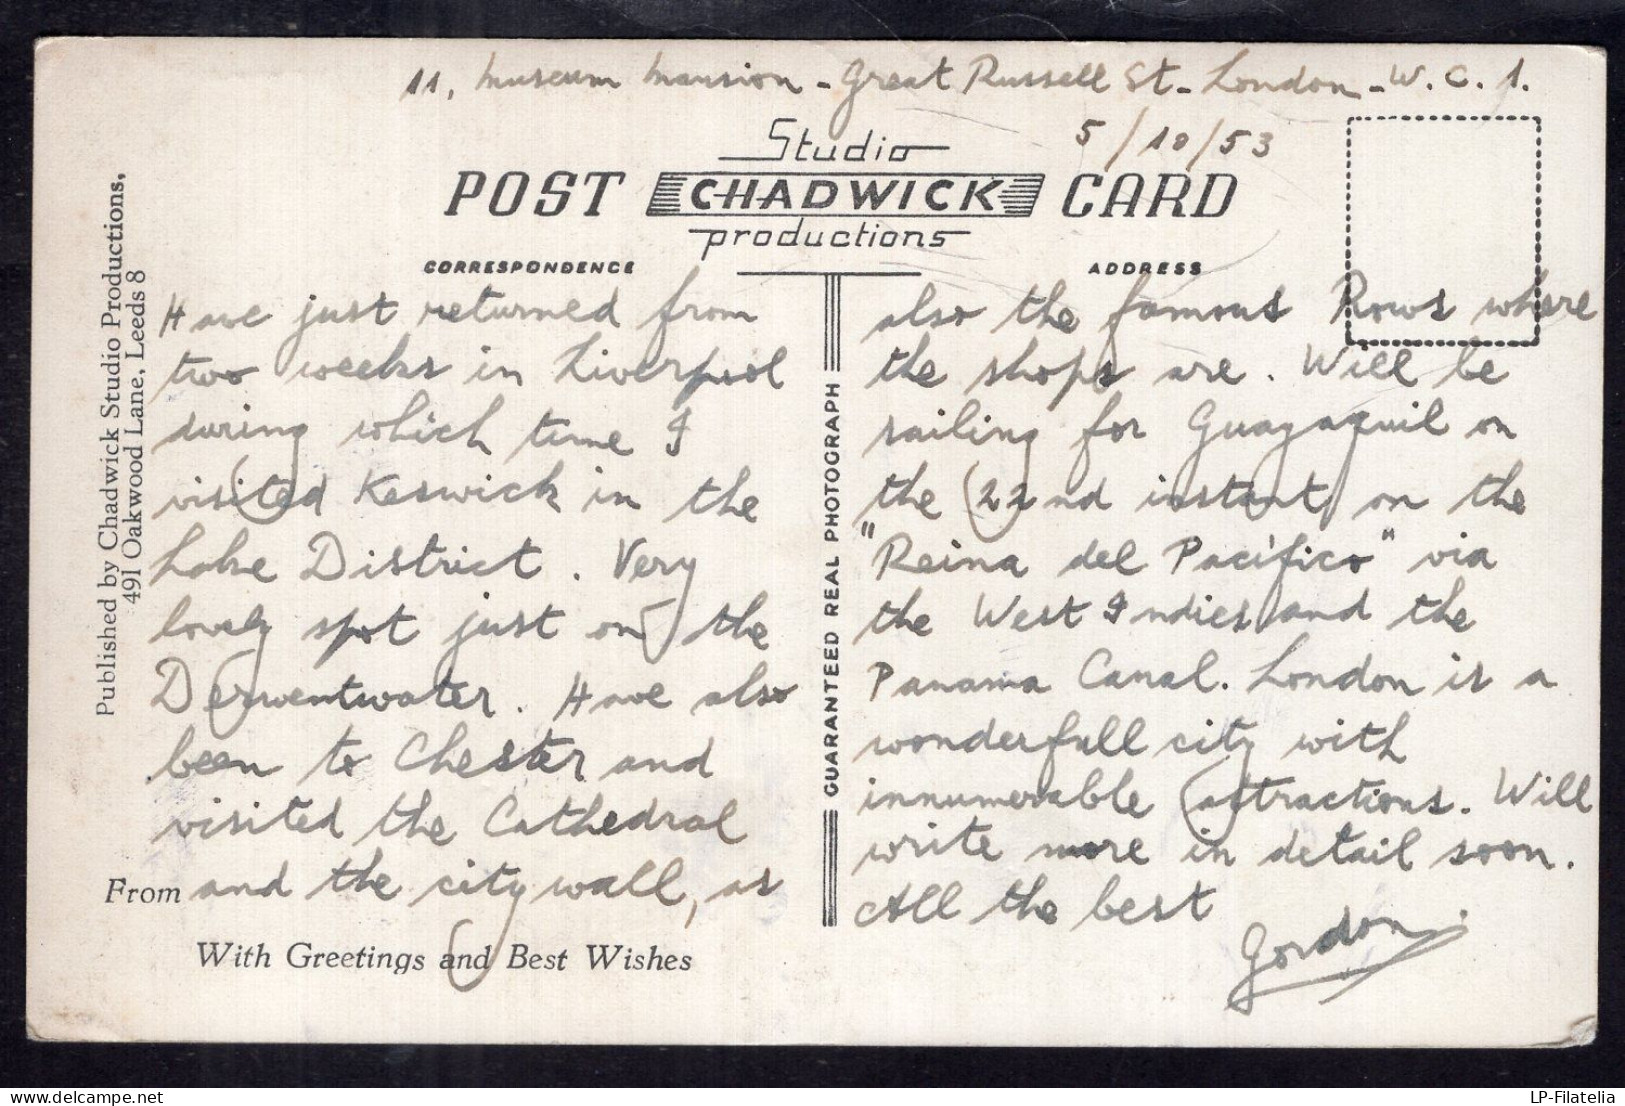 11, Museum Mansion - Great Russell St - London - W. C. 1.
5/10/53
Studio
POST CHADWICK CARD
productions
CORRESPONDENCE
ADDRESS
Published by Chadwick Studio Productions,
491 Oakwood Lane, Leeds 8
Have just returned from
two weeks in Liverpool
during which time I
visited Keswick in the
Lake District. Very
lovely spot just on the
Derwentwater. Have also
been to Chester and
visited the Cathedral
From and the city wall, as
With Greetings and Best Wishes
GUARANTEED REAL PHOTOGRAPH
also the famous Rows where
the shops are. Will be
sailing for Guayaquil on
the 22nd instant, on the
"Reina del Pacífico" via
the West Indies and the
Panama Canal. London is a
wonderfull city with
innumerable attractions. Will
write more in detail soon.
All the best
Gordon
LP-Filatelia